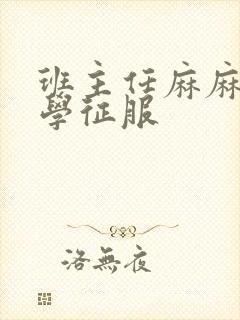 班主任麻麻
學征服
洛無夜